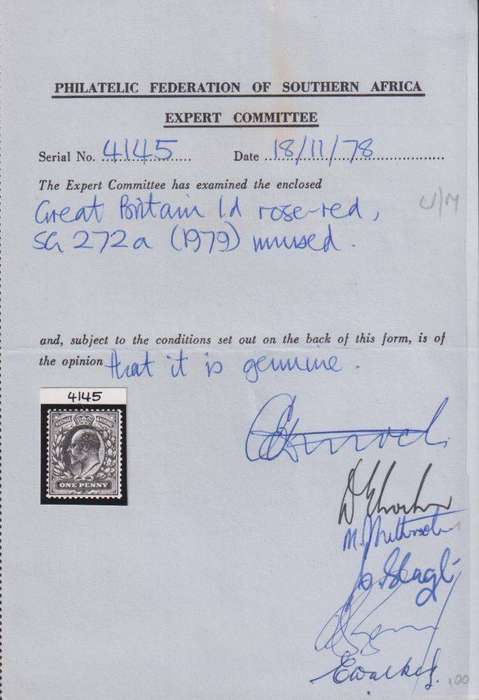 PHILATELIC FEDERATION OF SOUTHERN AFRICA
EXPERT COMMITTEE
Serial No. 4145 Date 18/11/78
The Expert Committee has examined the enclosed
Great Britain 1d rose-red, U/M
SG 272a (1979) unused.
and, subject to the conditions set out on the back of this form, is of
the opinion that it is genuine.
4145
ONE PENNY
100